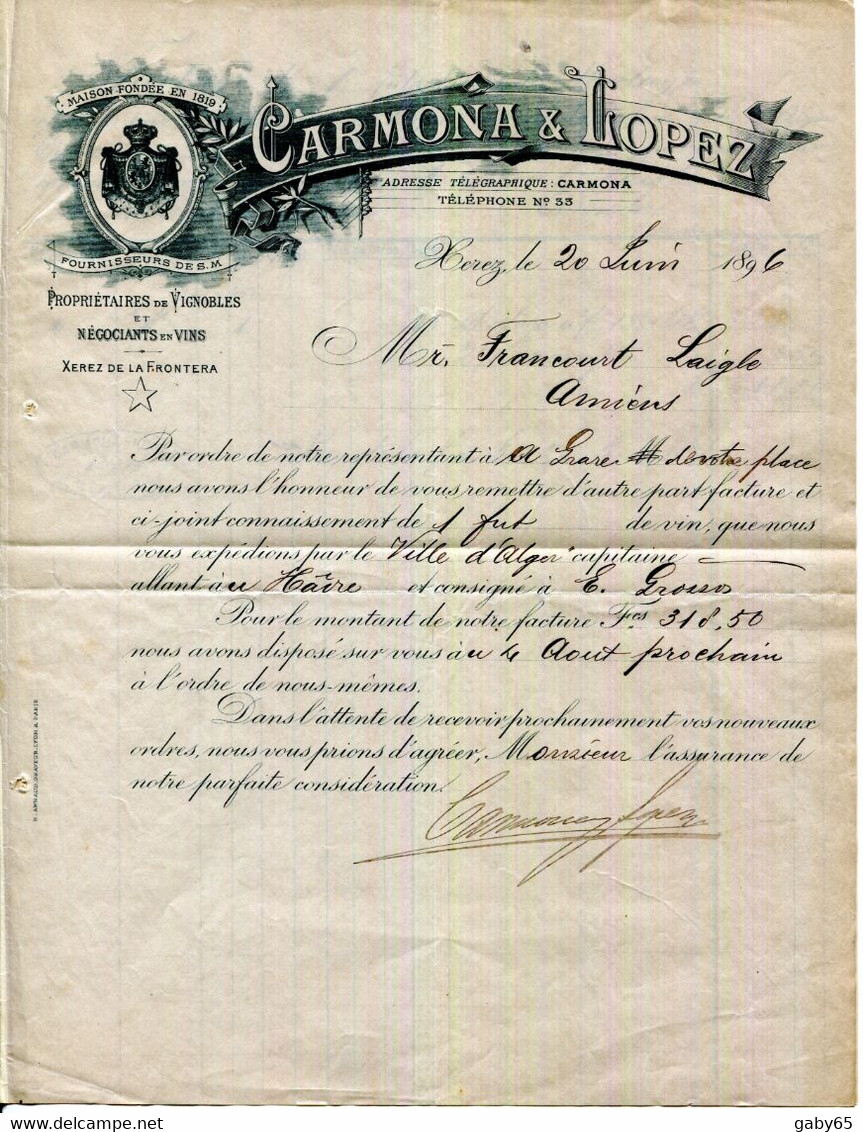 MAISON FONDÉE EN 1819
CARMONA & LOPEZ
ADRESSE TÉLÉGRAPHIQUE : CARMONA
TÉLÉPHONE Nº 33
FOURNISSEURS DE S.M
PROPRIÉTAIRES DE VIGNOBLES
ET
NÉGOCIANTS EN VINS
XEREZ DE LA FRONTERA
Xerez, le 20 Juin 1896
Mr. Francourt Laigle
Amiens
Par ordre de notre représentant à A Grare de votre place
nous avons l'honneur de vous remettre d'autre part facture et
ci-joint connaissement de 1 fut de vin, que nous
vous expédions par le "Ville d'Alger" capitaine —
allant à u Hâvre et consigné à E. Grosos
Pour le montant de notre facture Fcs 318,50
nous avons disposé sur vous à u 4 Aout prochain
à l'ordre de nous-mêmes.
Dans l'attente de recevoir prochainement vos nouveaux
ordres, nous vous prions d'agréer, Monsieur l'assurance de
notre parfaite considération.
Carmona y Lopez
delcampe.net
gaby65